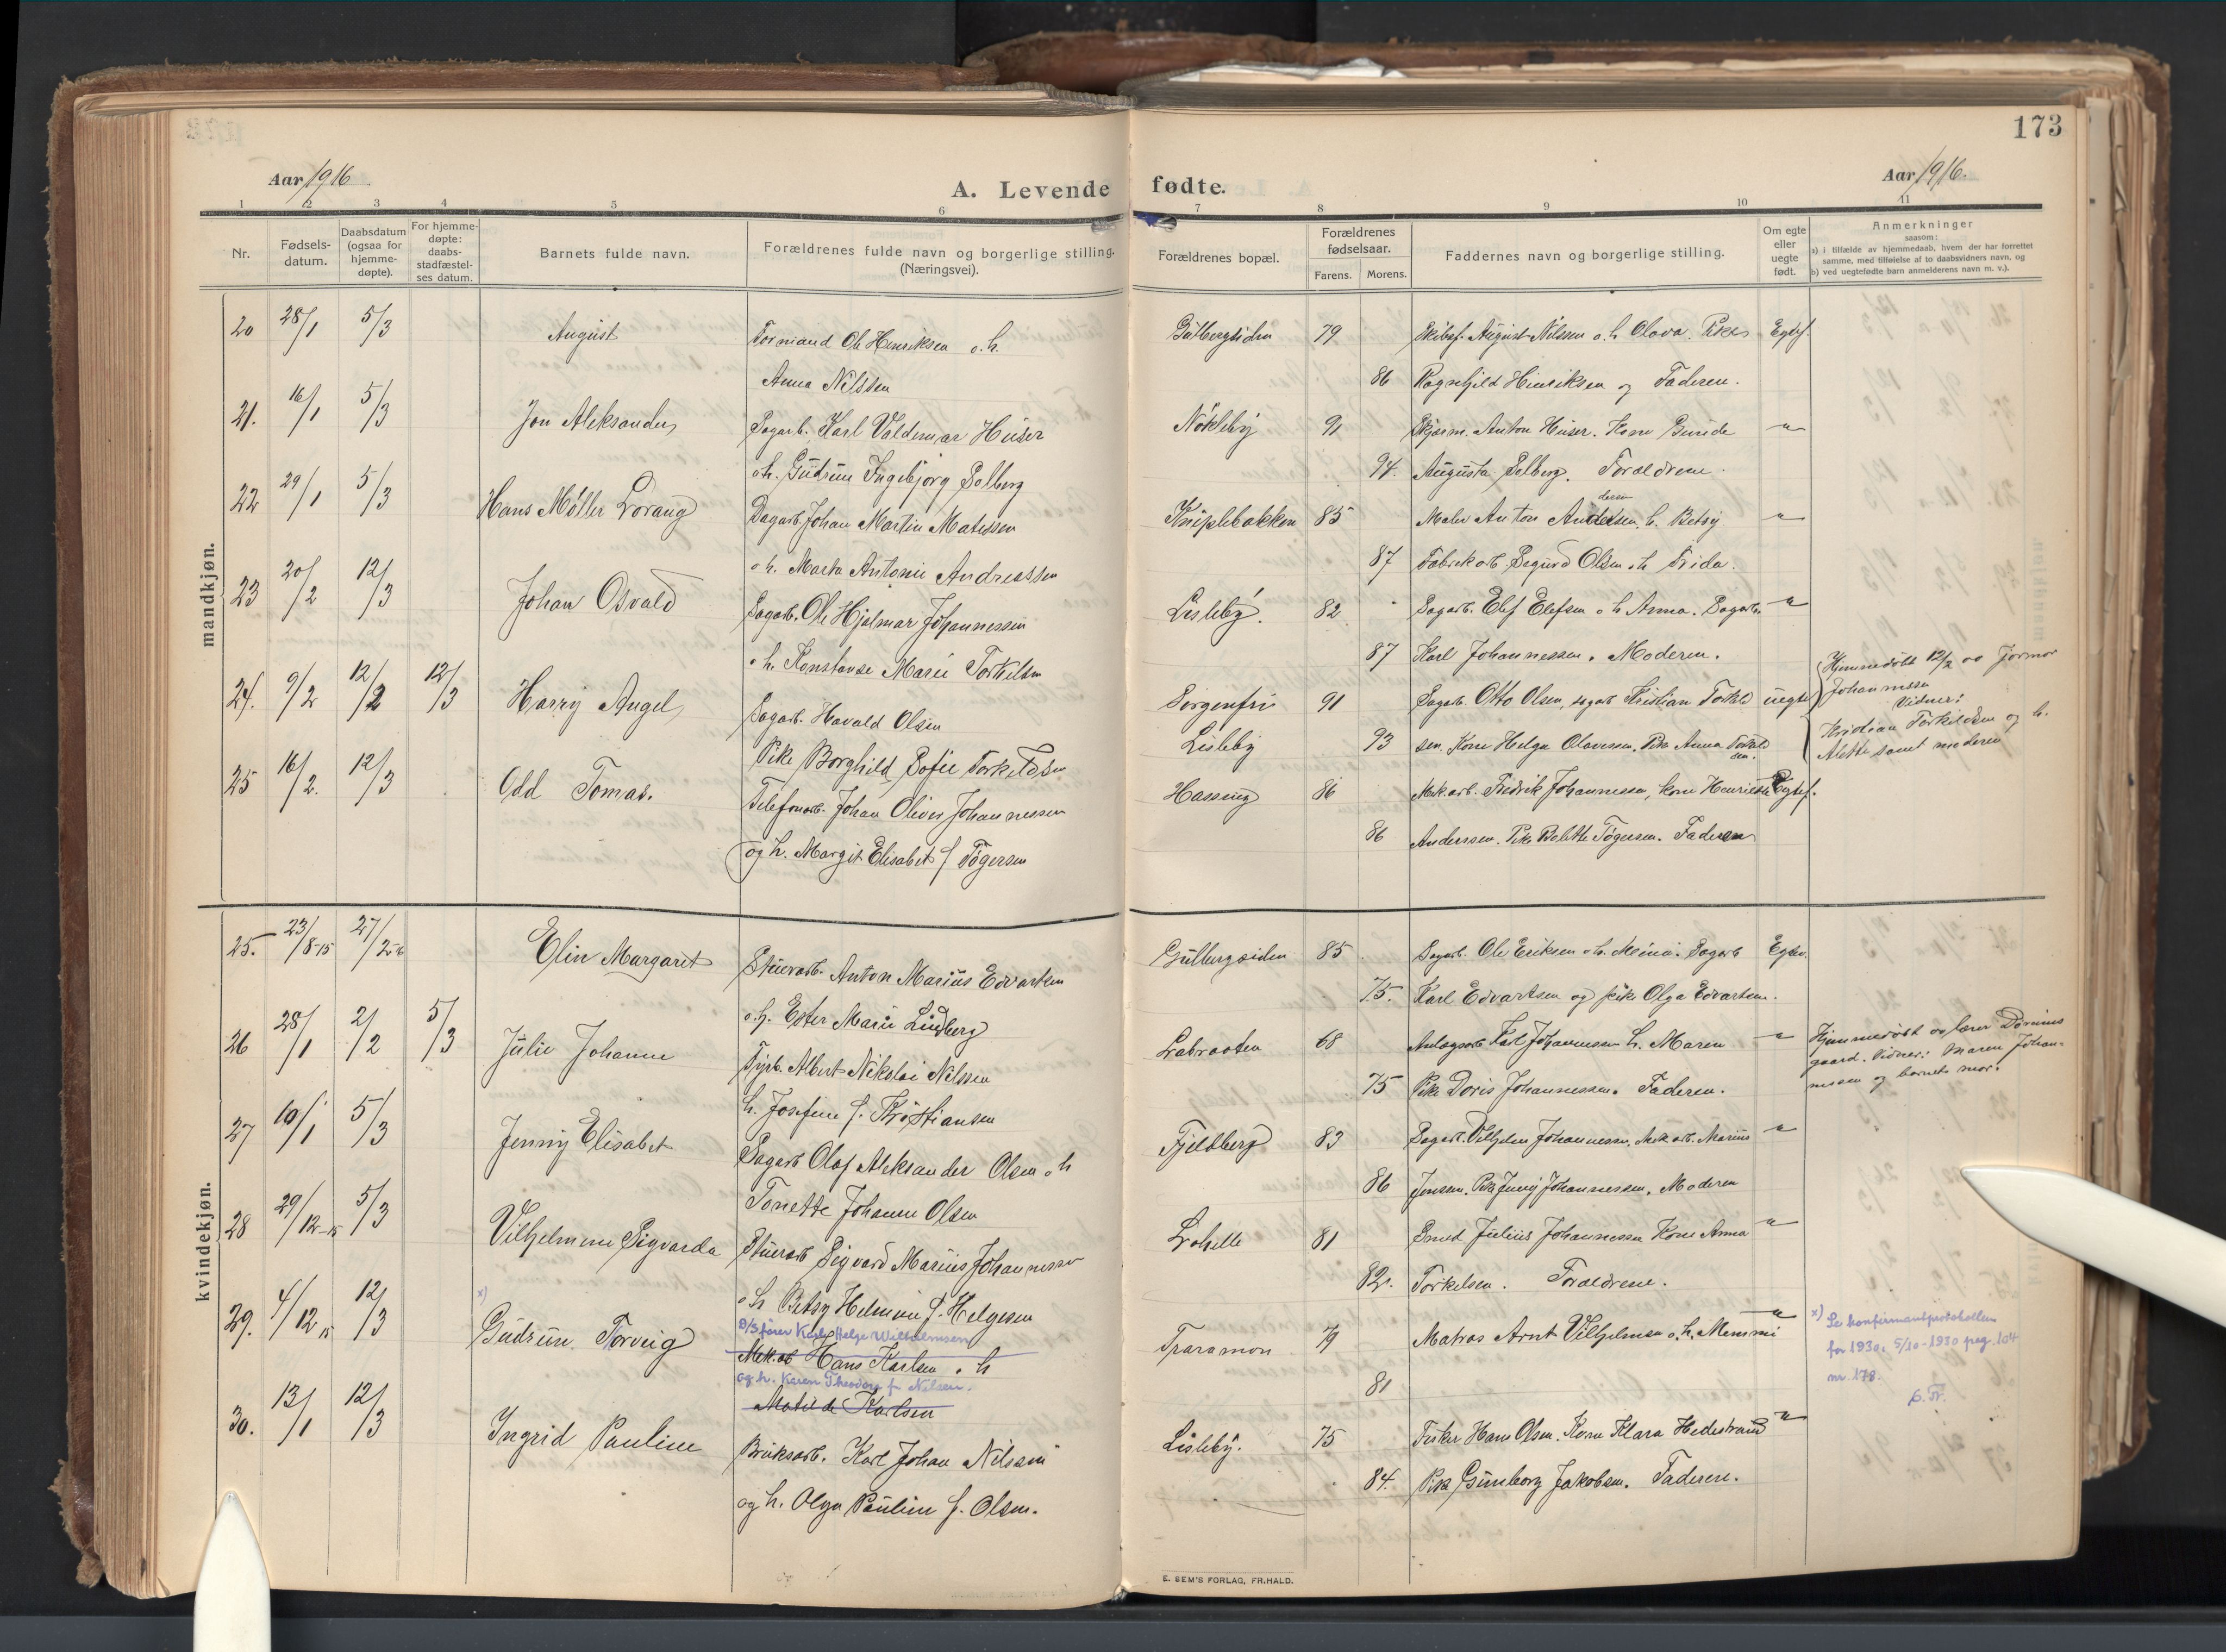 173
Aar 1916
A. Levende fødte.
Aar 1916.
1 2 3 4 5 6 7 8 9 10 11
Nr.
Fødsels-
datum.
Daabsdatum
(ogsaa for
hjemme-
døpte).
For hjemme-
døpte:
daabs-
stadfæstel-
ses datum.
Barnets fulde navn.
Forældrenes fulde navn og borgerlige stilling.
(Næringsvei).
Forældrenes bopæl.
Forældrenes
fødselsaar.
Farens. Morens.
Faddernes navn og borgerlige stilling.
Om egte
eller
uegte
født.
Anmerkninger
saasom:
a) i tilfælde av hjemmedaab, hvem der har forrettet
samme, med tilføielse af to daabsvidners navn, og
b) ved uegtefødte barn anmelderens navn m. v.).
mandkjøn.
20 28/1 5/3 August Formand Ole Henriksen o. h. 79 Skibsf. August Nilssen o. h. Olava. Pike Egtef.
Anna Nilssen 86 Ragnhild Hinriksen og Faderen.
21. 16/1 5/3 Jon Aleksander Sagarb. Karl Valdemar Huser Nökleby 91 Anton Huser. Kone Gunda "
o h. Gudrun Ingebjørg Solberg 94. Augusta Solberg. Forældrene.
22 29/1 5/3 Hans Møller Lorang Dagarb. Johan Martin Matissen Kniplebakken 85 Maler Anton Andersen. h. Betsy "
o h. Marta Antonie Andreassen 87 Fabrikarb Sigurd Olsen o h Frida.
23 20/2 12/3 Johan Osvald Sagarb. Ole Hjalmar Johannessen Lisleby. 82 Sagarb. Elef Elefsen o h Anna. Sagarb. "
o h. Konstanse Marie Torkilsen 87 Karl Johannessen. Moderen.
24. 9/2 12/2 12/3 Harry Angel Sagarb. Havald Olsen Sorgenfri 91 Sagarb. Otto Olsen, sagarb Kristian Torkild uegte
Pike Borghild Sofie Torkildsen Lisleby 93 sen. Kone Helga Olavesen. Pike Anna Torkild
sen.
Hjemmedöbt 12/2 av Jormor
Johannssen
Vidner:
Kristian Torkildsen og h.
Alette samt moderen
25 16/2. 12/3 Odd Tomas. Telefonarb. Johan Oliver Johannessen Hassing 86 Mek.arb. Fredrik Johannessen, Kone Henriette Egtef.
og h. Margit Elisabet f Tögersen 86 Anderssen. Pike Bolette Tögersen. Faderen
kvindekjøn.
25. 23/8-15 27/2 Elin Margaret Stuerarb. Anton Marius Edvartsen Gulbergsiden 85 Sagarb. Ole Eriksen o h. Mina. Sagarb Egtev.
o. h. Ester Marie Lindberg 75. Karl Edvartsen og pike Olga Edvartsen.
26 28/1 2/2 5/3 Julie Johanne Fyrb. Albert Nikolai Nilssen Labraaten 68 Anlægsarb Karl Johannessen h. Maren "
h. Josefine f. Kristiansen 75 Pike Doris Johannessen. Faderen.
Hjemmedöbt av lærer
gaard. Vidner: Maren Johan-
nessen og barnets mor.
27 10/1 5/3 Jenny Elisabet Sagarb Olaf Aleksander Olsen o h Fjeldberg 83 Sagarb. Vilhelm Johannessen, Mek arb. Marius "
Tonette Johanne Olsen 86 Jenssen. Pike Jenny Johannessen. Moderen
28 29/12-15 5/3 Vilhelmine Sigvarda Stuerarb Sigvard Marius Johannessen Lahelle 81 Smed Julius Johannessen Kone Anna "
o h Betsy Helmine f. Helgesen 82. Torkelsen. Forældrene.
29. 4/12 15 12/3 x) Gudrun Torveig D/S fører Karl Helge Wilhelmsen
Mek. arb Hans Karlsen o h Traramon 79 Matros Arnt Vilhelmsen o. h. Memmi "
og h. Karen Theodora f. Nilsen.
Matilde Karlsen 81
x) Se konfirmantprotokollen
for 1930: 5/10-1930 pag. 104
nr. 178.
30. 13/1 12/3 Ingrid Pauline Bruksarb. Karl Johan Nilssen Lisleby. 75 Fisker Hans Olsen. Kone Klara Hedestrand "
og h. Olga Pauline f. Olsen. 84. Pike Gunborg Jakobsen. Faderen.
E. SEM'S FORLAG, FR.HALD.